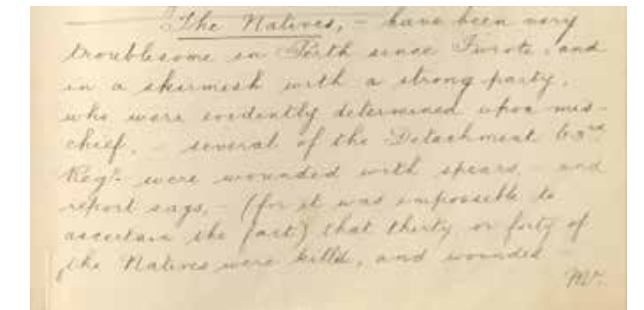 The Natives, - have been very
troublesome in Perth since I wrote, and
in a skirmish with a strong party,
who were evidently determined upon mis-
chief, - several of the Detachment 63rd
Regt. were wounded with spears, - and
report says, - (for it was impossible to
ascertain the fact) that thirty or forty of
the Natives were killd, and wounded -
Mr.